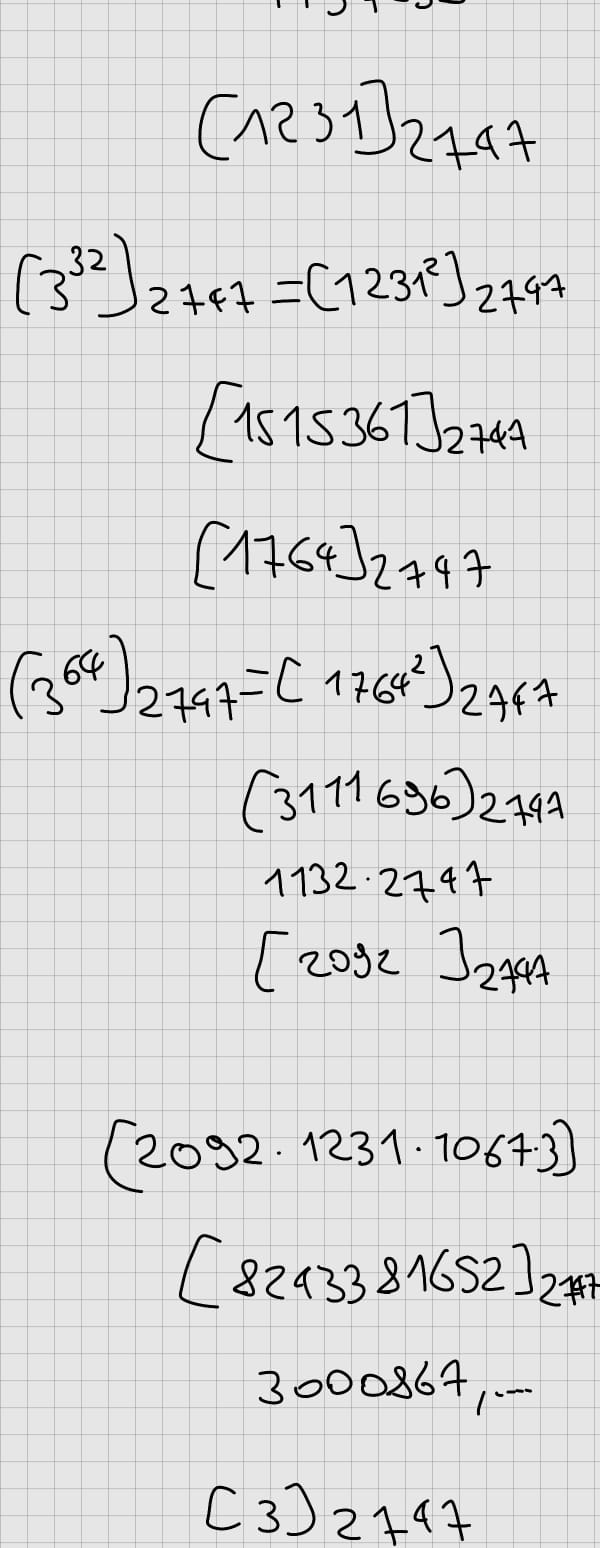 [1231]₂₇₄₇
[3³²]₂₇₄₇ = [1231²]₂₇₄₇
[1515361]₂₇₄₇
[1764]₂₇₄₇
[3⁶⁴]₂₇₄₇ = [1764²]₂₇₄₇
[3111696]₂₇₄₇
1132·2747
[2092 ]₂₇₄₇
[2092·1231·1067·3]
[8243381652]₂₇₄₇
3000867,...
[3]₂₇₄₇